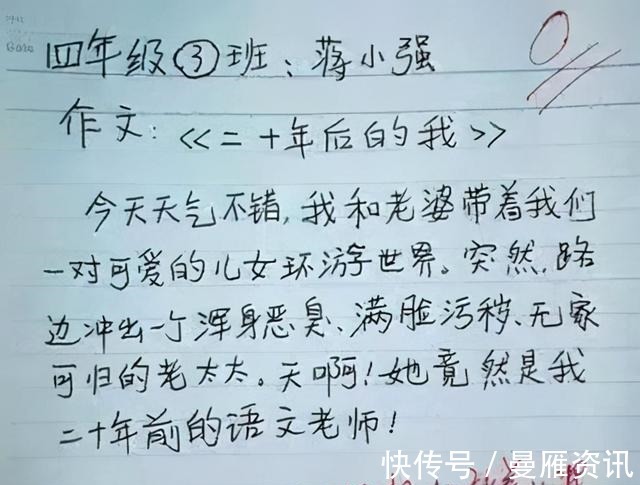 四年级③班：蒋小强
0
作文：<<二十年后的我>>
今天天气不错，我和老婆带着我们
一对可爱的儿女环游世界。突然，路
边冲出一个浑身恶臭、满脸污秽、无家
可归的老太太。天啊！她竟然是我
二十年前的语文老师！
快传号／曼雁资讯